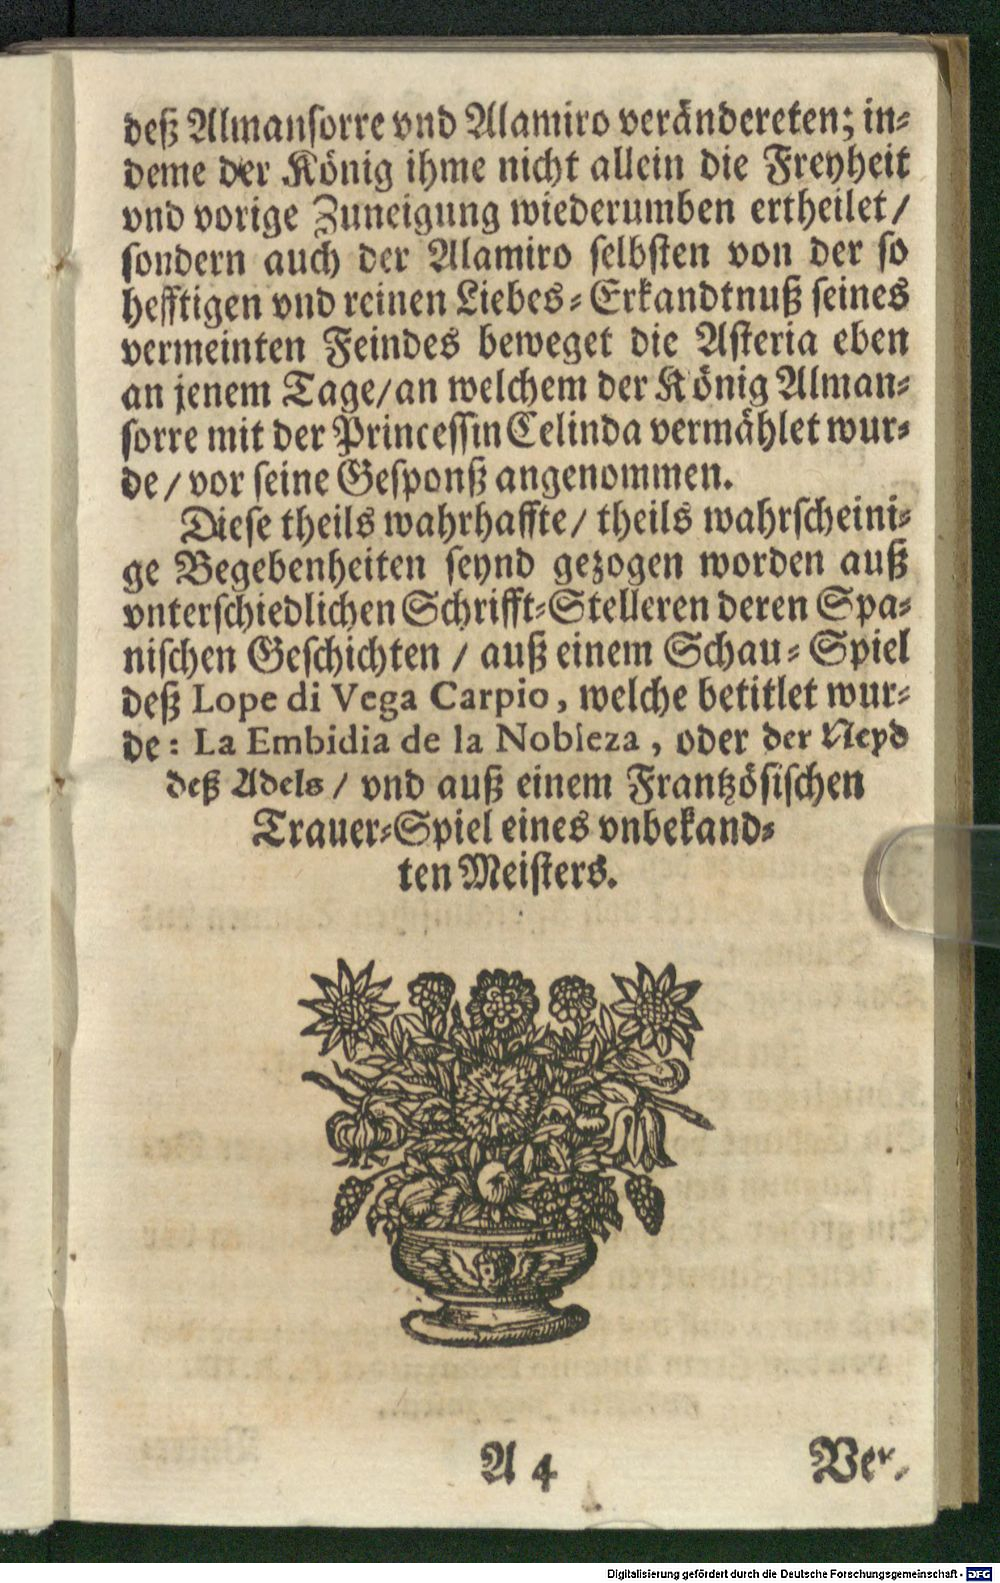 deß Almansorre vnd Alamiro verändereten; in-
deme der König ihme nicht allein die Freyheit
vnd vorige Zuneigung wiederumben ertheilet /
sondern auch der Alamiro selbsten von der so
hefftigen vnd reinen Liebes-Erkandtnuß seines
vermeinten Feindes beweget die Asteria eben
an jenem Tage / an welchem der König Alman-
sorre mit der Princessin Celinda vermählet wur-
de / vor seine Gesponß angenommen.
Diese theils wahrhaffte / theils wahrscheini-
ge Begebenheiten seynd gezogen worden auß
vnterschiedlichen Schrifft-Stelleren deren Spa-
nischen Geschichten / auß einem Schau-Spiel
deß Lope di Vega Carpio, welche betitlet wur-
de: La Embidia de la Nobleza, oder der Neyd
deß Adels / vnd auß einem Frantzösischen
Trauer-Spiel eines vnbekand-
ten Meisters.
A 4 Ver-
Digitalisierung gefördert durch die Deutsche Forschungsgemeinschaft - DFG